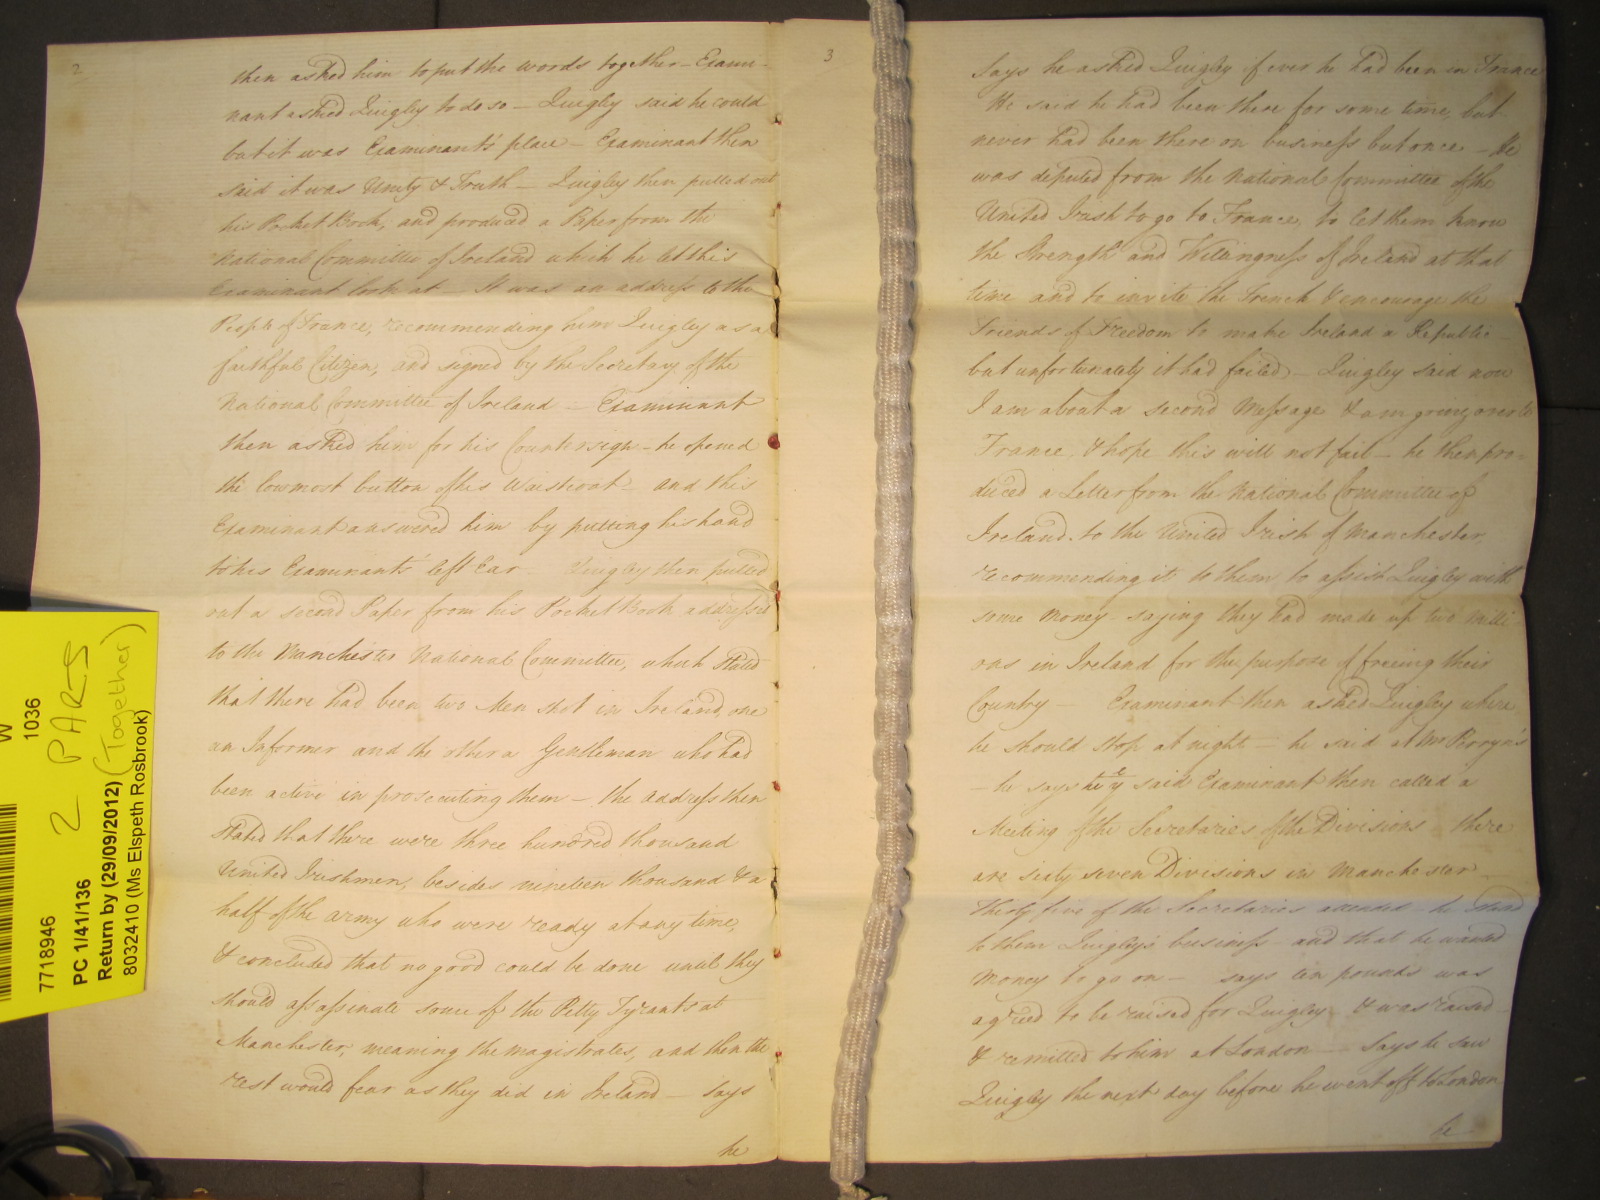 2
then asked him to put the words together – Exami-
nant asked Quigley to do so – Quigley said he could
but it was Examinant's place – Examinant then
said it was Unity & Truth – Quigley then pulled out
his Pocket Book, and produced a Paper from the
National Committee of Ireland which he let this
Examinant look at – It was an address to the
People of France, recommending him Quigley as a
faithful Citizen, and signed by the Secretary of the
National Committee of Ireland – Examinant
then asked him for his Countersign – he opened
the lowmost button of his Waistcoat – and this
Examinant answered him by putting his hand
to his Examinant's left Ear. Quigley then pulled
out a second Paper from his Pocket Book addressed
to the Manchester National Committee, which stated
that there had been two Men shot in Ireland, one
an Informer and the other a Gentleman who had
been active in prosecuting them – the address then
stated that there were three hundred thousand
United Irishmen, besides nineteen thousand & a
half of the army who were ready at any time,
& concluded that no good could be done until they
should assassinate some of the Petty Tyrants at
Manchester, meaning the magistrates, and then the
rest would fear as they did in Ireland – says
he
3
says he asked Quigley if ever he had been in France
He said he had been there for some time, but
never had been there on business but once – He
was deputed from the National Committee of the
United Irish to go to France, to let them know
the Strength and Willingness of Ireland at that
time and to invite the French & encourage the
Friends of Freedom to make Ireland a Republic –
but unfortunately it had failed – Quigley said now
I am about a second Message & am going over to
France, & hope this will not fail – he then pro-
duced a Letter from the National Committee of
Ireland to the United Irish of Manchester,
recommending it to them to assist Quigley with
some Money – saying they had made up two Milli
ons in Ireland for the purpose of freeing their
Country – Examinant then asked Quigley where
he should stop at night – he said at Mr Perryn's
– he says he y said Examinant then called a
Meeting of the Secretaries of the Divisions there
are sixty seven Divisions in Manchester –
thirty five of the Secretaries attended he stated
to them Quigley's business – and that he wanted
Money to go on – says ten pounds was
agreed to be raised for Quigley & was raised –
& remitted to him at London – Says he saw
Quigley the next day before he went off to London
he
W
1036
2 PARTS
(Together)
7718946
PC 1/41/136
Return by (29/09/2012)
8032410 (Ms Elspeth Rosbrook)